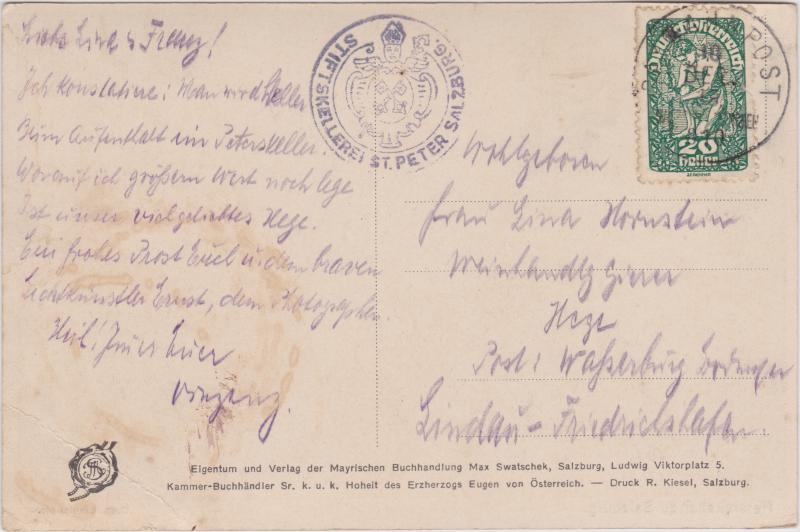 Liebe Lina & Franz!
Ich konstatiere: Man wird heller
Beim Aufenthalt im Peterskeller.
Worauf ich größern Wert noch lege
Ist unser vielgeliebtes Hege.
Ein frohes Prost Euch u. dem braven
Lichtkünstler Ernst, dem Photographen.
Heil! Euer
STIFTSKELLEREI ST. PETER SALZBURG.
Deutschösterreich
20
Heller
POST
Wohlgeboren
Frau Lina Hornstein
Hege
Post: Wasserburg Bodensee
Lindau-Friedrichshafen.
Eigentum und Verlag der Mayrischen Buchhandlung Max Swatschek, Salzburg, Ludwig Viktorplatz 5.
Kammer-Buchhändler Sr. k. u. k. Hoheit des Erzherzogs Eugen von Österreich. — Druck R. Kiesel, Salzburg.